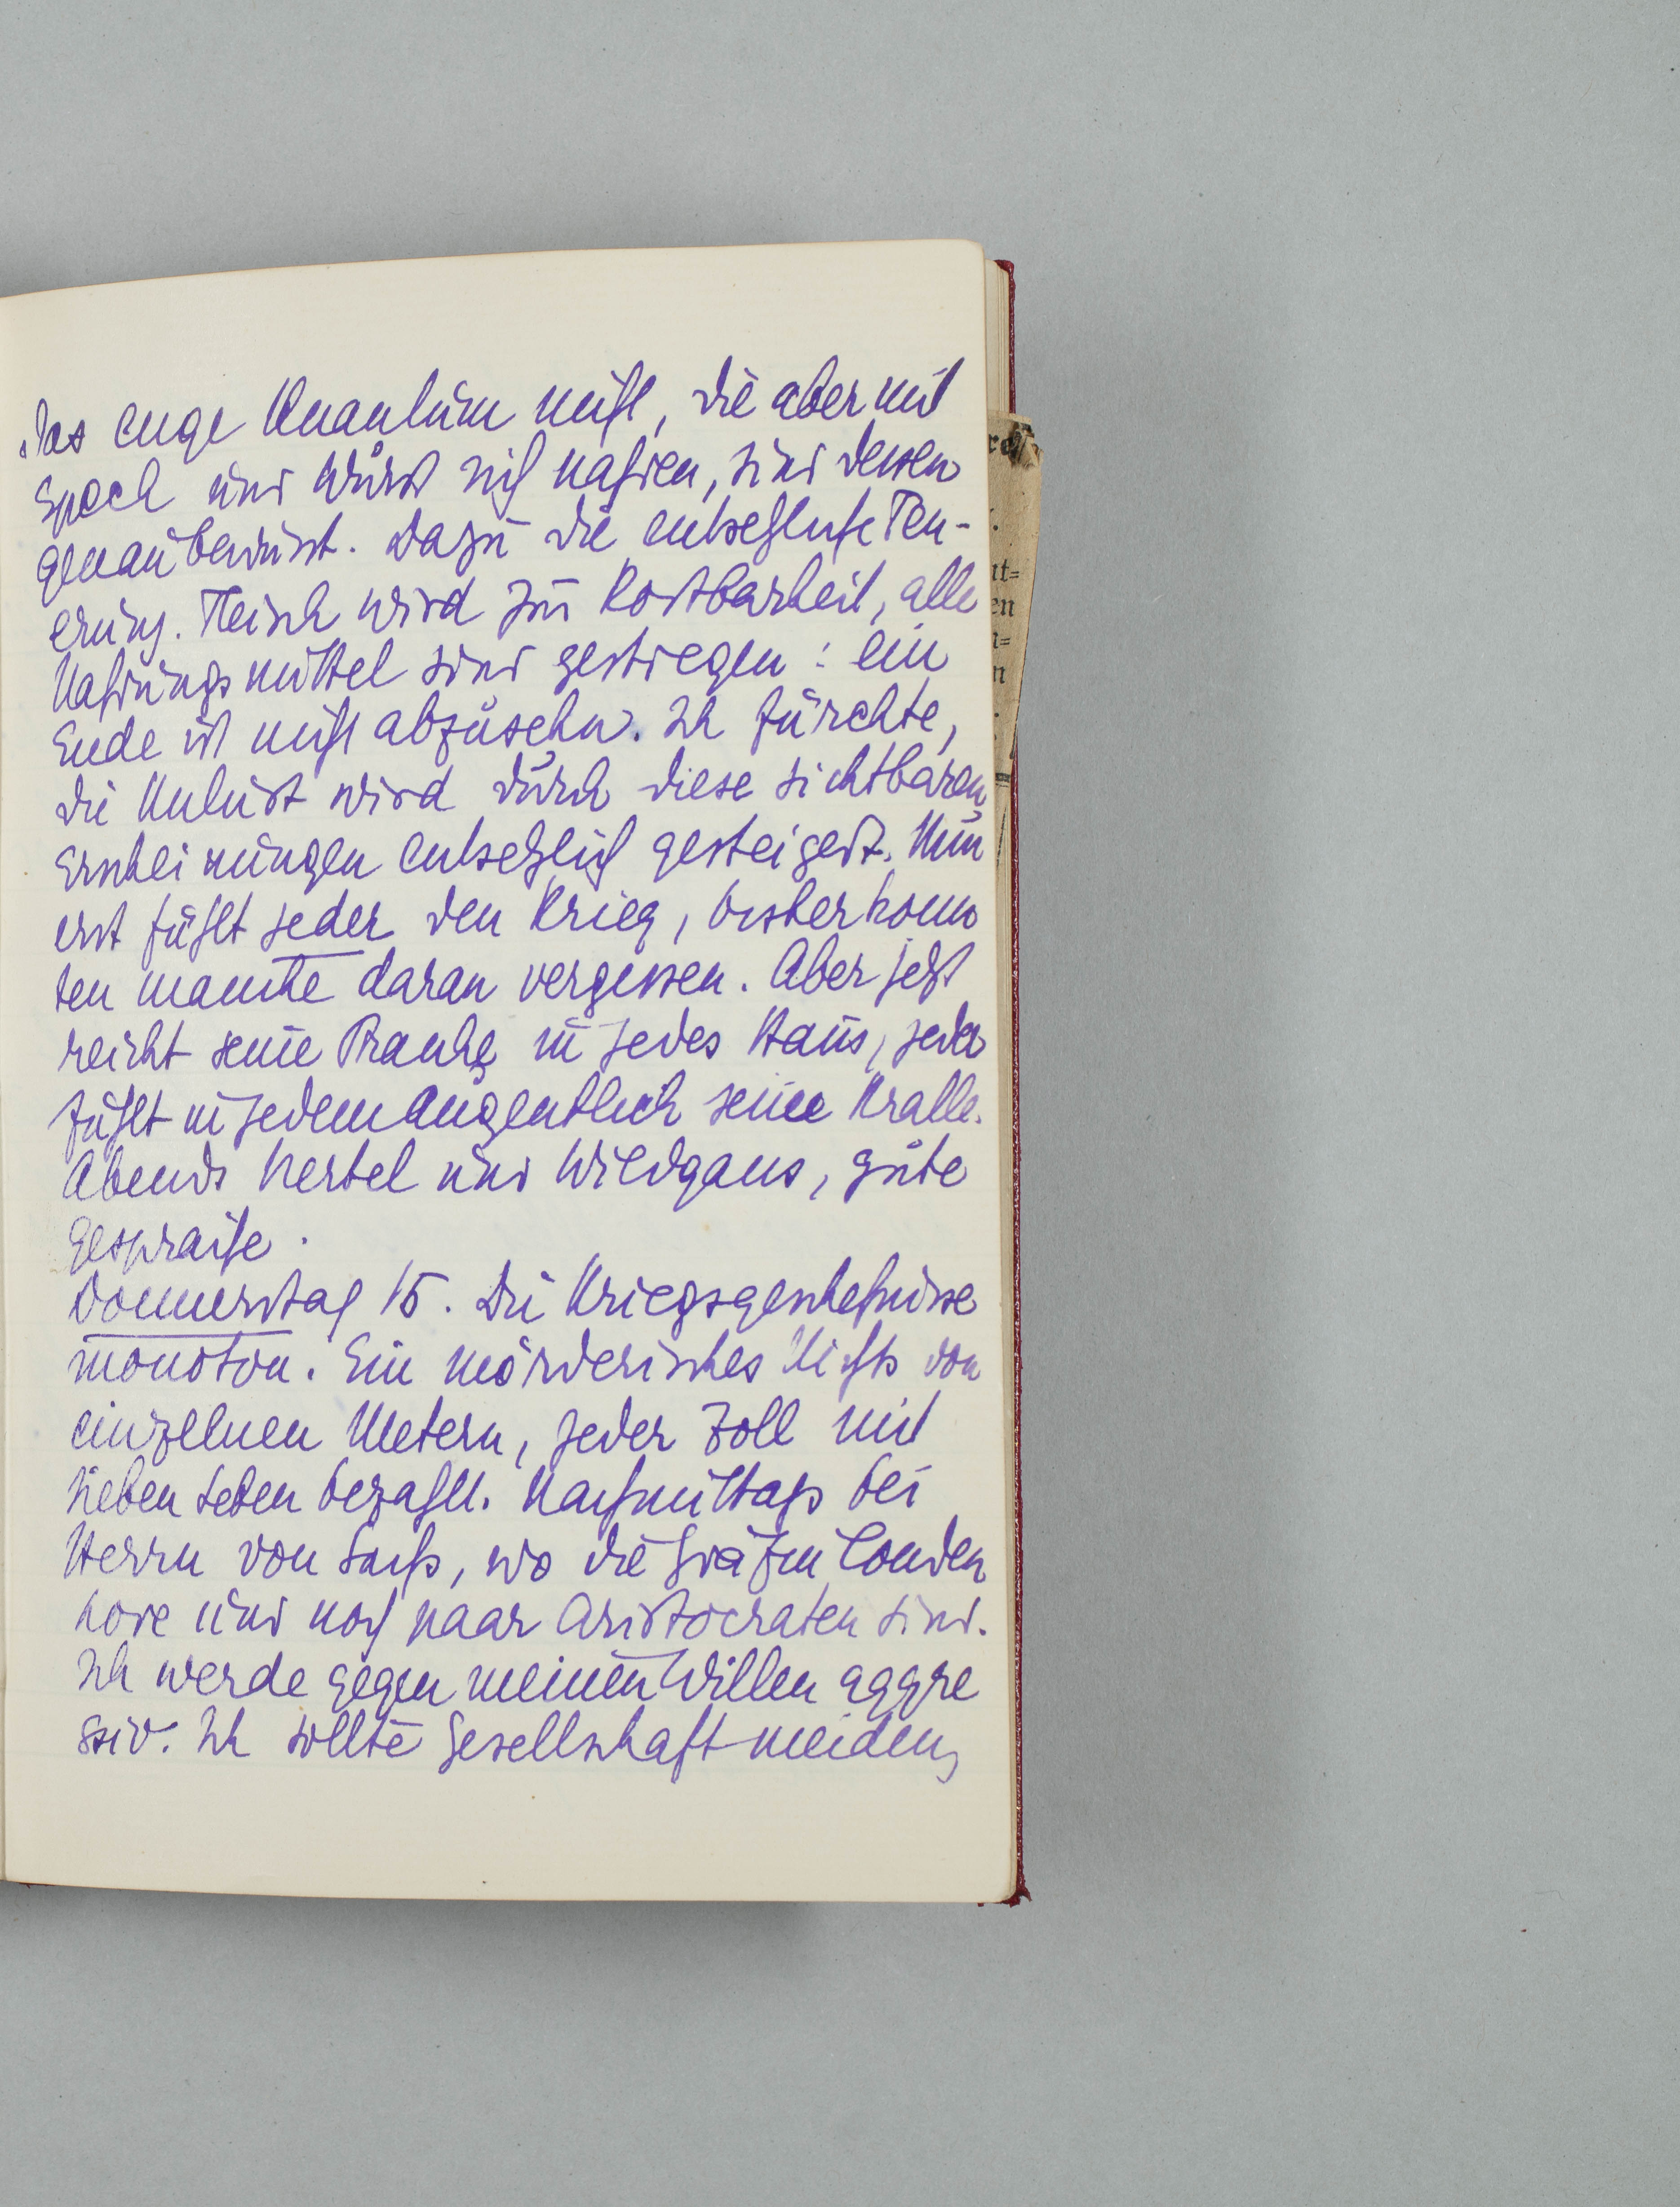 das enge Quantum nicht, die aber mit
Speck und Wurst sich nähren, sind dessen
genau bewusst. Dazu die entsetzliche Teu-
erung. Fleisch wird zur Kostbarkeit, alle
Nahrungsmittel sind gestiegen: ein
Ende ist nicht abzusehn. Ich fürchte,
die Unlust wird durch diese sichtbaren
Erscheinungen entsetzlich gesteigert. Nun
erst fühlt jeder den Krieg, bisher konn
ten manche daran vergessen. Aber jetzt
reicht seine Pranke in jedes Haus, jeder
fühlt in jedem Augenblick seine Kralle.
Abends Hertel und Wildgans, gute
Gespräche.
Donnerstag 15. Die Kriegsgeschehnisse
monoton. Ein mörderisches Nichts von
einzelnen Metern, jeder Zoll mit
sieben Leben bezahlt. Nachmittags bei
Herrn von, wo die Gräfin Couden
hove und noch paar Aristocraten sind.
Ich werde gegen meinen Willen aggre
ssiv. Ich sollte Gesellschaft meiden,
nt=
en
n